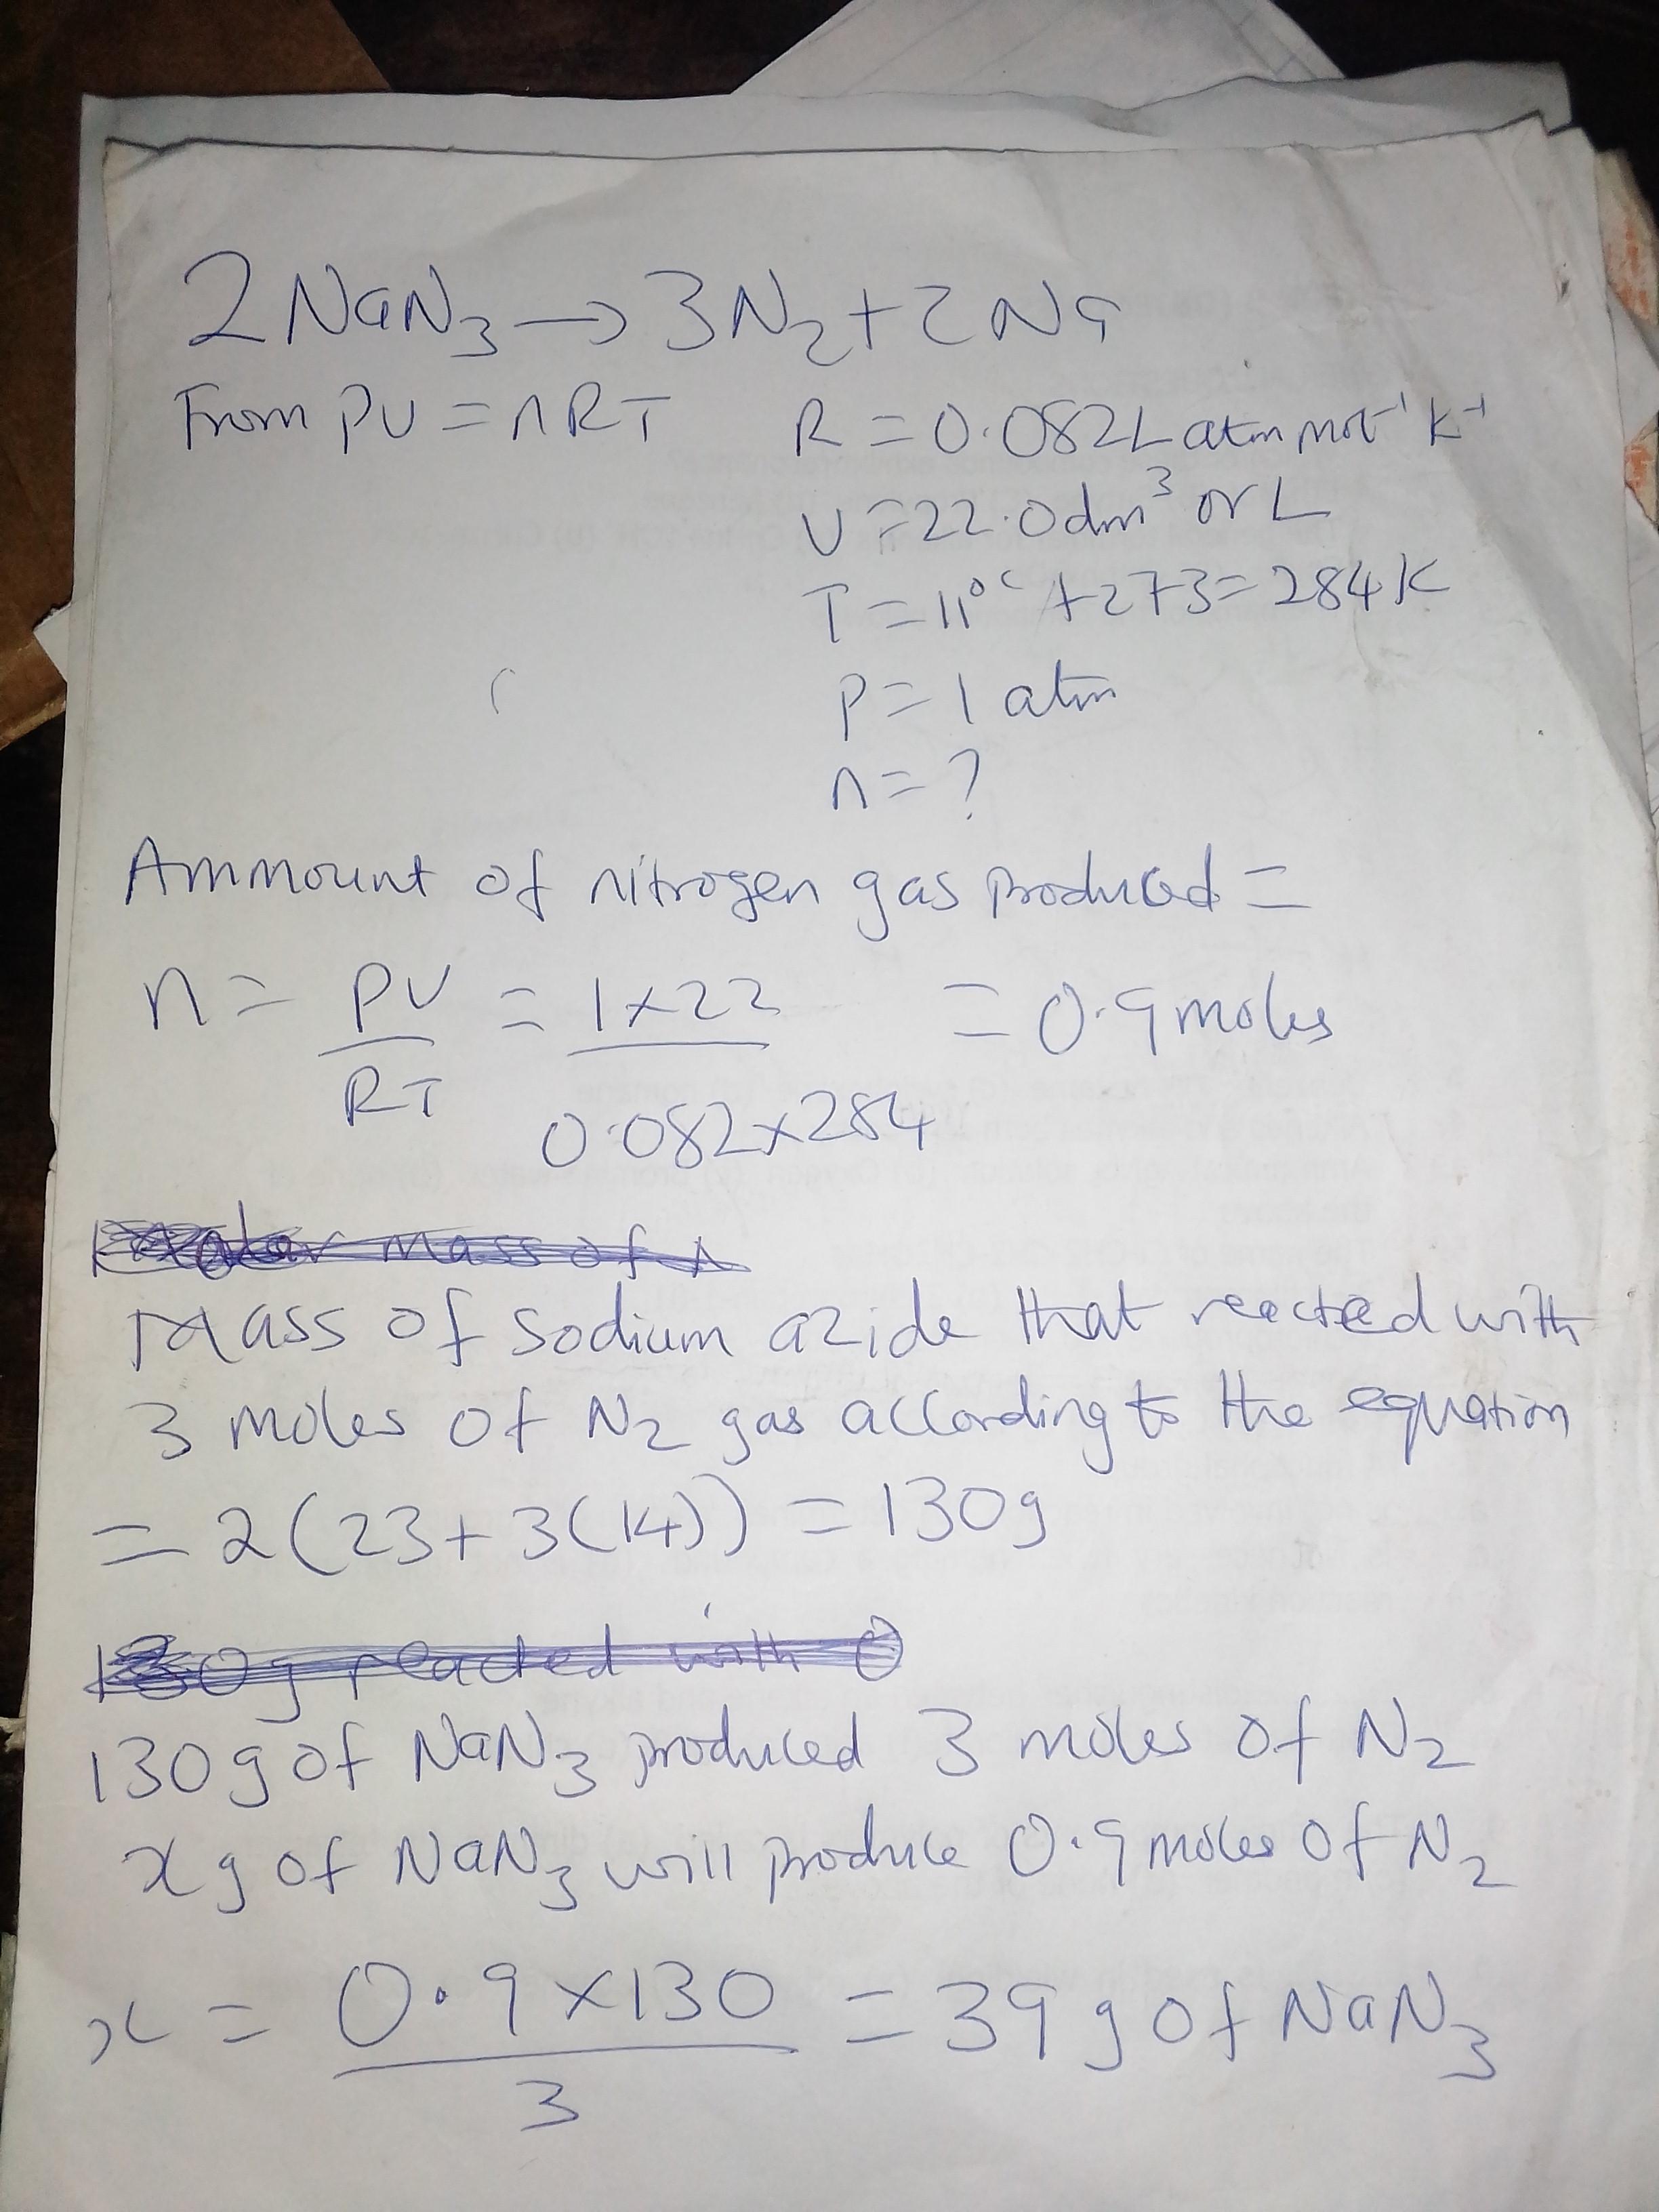 2NaN₃ → 3N₂ + 2Na
From PV = nRT R = 0.082 L atm mol⁻¹ K⁻¹
V = 22.0 dm³ or L
T = 11°C + 273 = 284 K
P = 1 atm
n = ?
Ammount of nitrogen gas produced =
n = PV/RT = 1×22/0.082×284 = 0.9 moles
mass of
Mass of sodium azide that reacted with
3 moles of N₂ gas according to the equation
= 2(23 + 3(14)) = 130g
130g reacted with 0
130g of NaN₃ produced 3 moles of N₂
x g of NaN₃ will produce 0.9 moles of N₂
x = 0.9 × 130/3 = 39 g of NaN₃